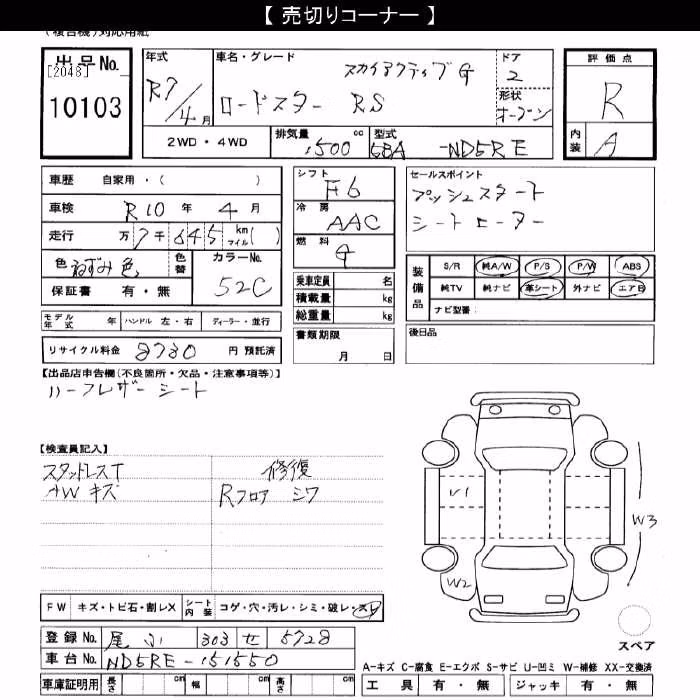 【 売切りコーナー 】
(複合機)対応用紙
出品No.
[2048]
10103
年式
R7/4月
車名・グレード
スカイアクティブG
ロードスター RS
ドア
2
形状
オープン
評価点
R
内装
A
2WD・4WD
排気量 cc
1500
型式
5BA-ND5RE
車歴 自家用・( )
車検 R10年 4月
走行 万7千645 km マイル( )
色 ねずみ色
色替
カラーNo.
52C
保証書 有・無
シフト
F6
冷房
AAC
燃料
G
乗車定員 名
積載量 kg
総重量 kg
セールスポイント
プッシュスタート
シートヒーター
装備品
S/R 純A/W P/S P/W ABS
純TV 純ナビ 革シート 外ナビ エアB
ナビ型番:
モデル年式 年 ハンドル 左・右 ディーラー・並行
リサイクル料金 8780 円 預託済
書類期限
月 日
後日品
【出品店申告欄(不良箇所・欠品・注意事項等)】
ハーフレザーシート
【検査員記入】
スタッドレスT
AW キズ
修復
Rフロア シワ
V1
W2
W3
スペア
FW キズ・トビ石・割レX シート内装 コゲ・穴・汚レ・シミ・破レ・スレ
登録No. 303 せ 5728
車台No. ND5RE-151550
車庫証明用 長さ cm 幅 cm 高さ cm
A-キズ C-腐食 E-エクボ S-サビ U-凹ミ W-補修 XX-交換済
工具 有・無 ジャッキ 有・無